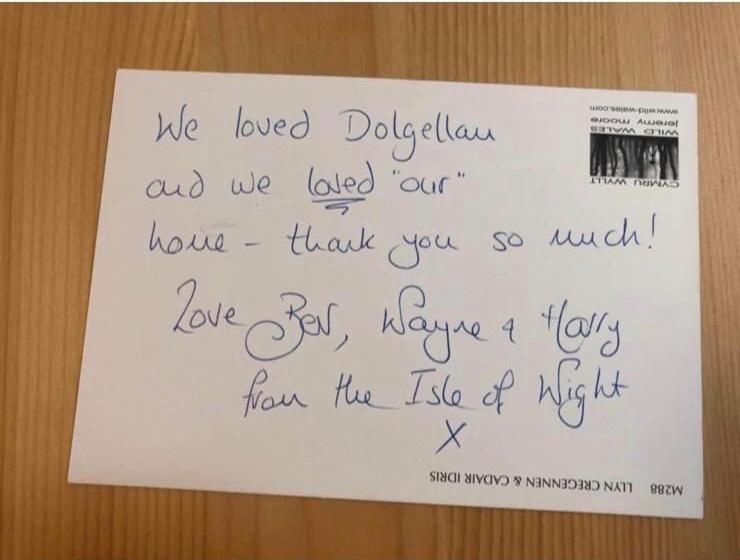 We loved Dolgellau
and we loved "our"
home - thank you so much!
Love Bev, Wayne & Harry
from the Isle of Wight
X
CYMRU WYLLT
WILD WALES
jeremy moore
www.wild-wales.com
M288 LLYN CREGENNEN & CADAIR IDRIS